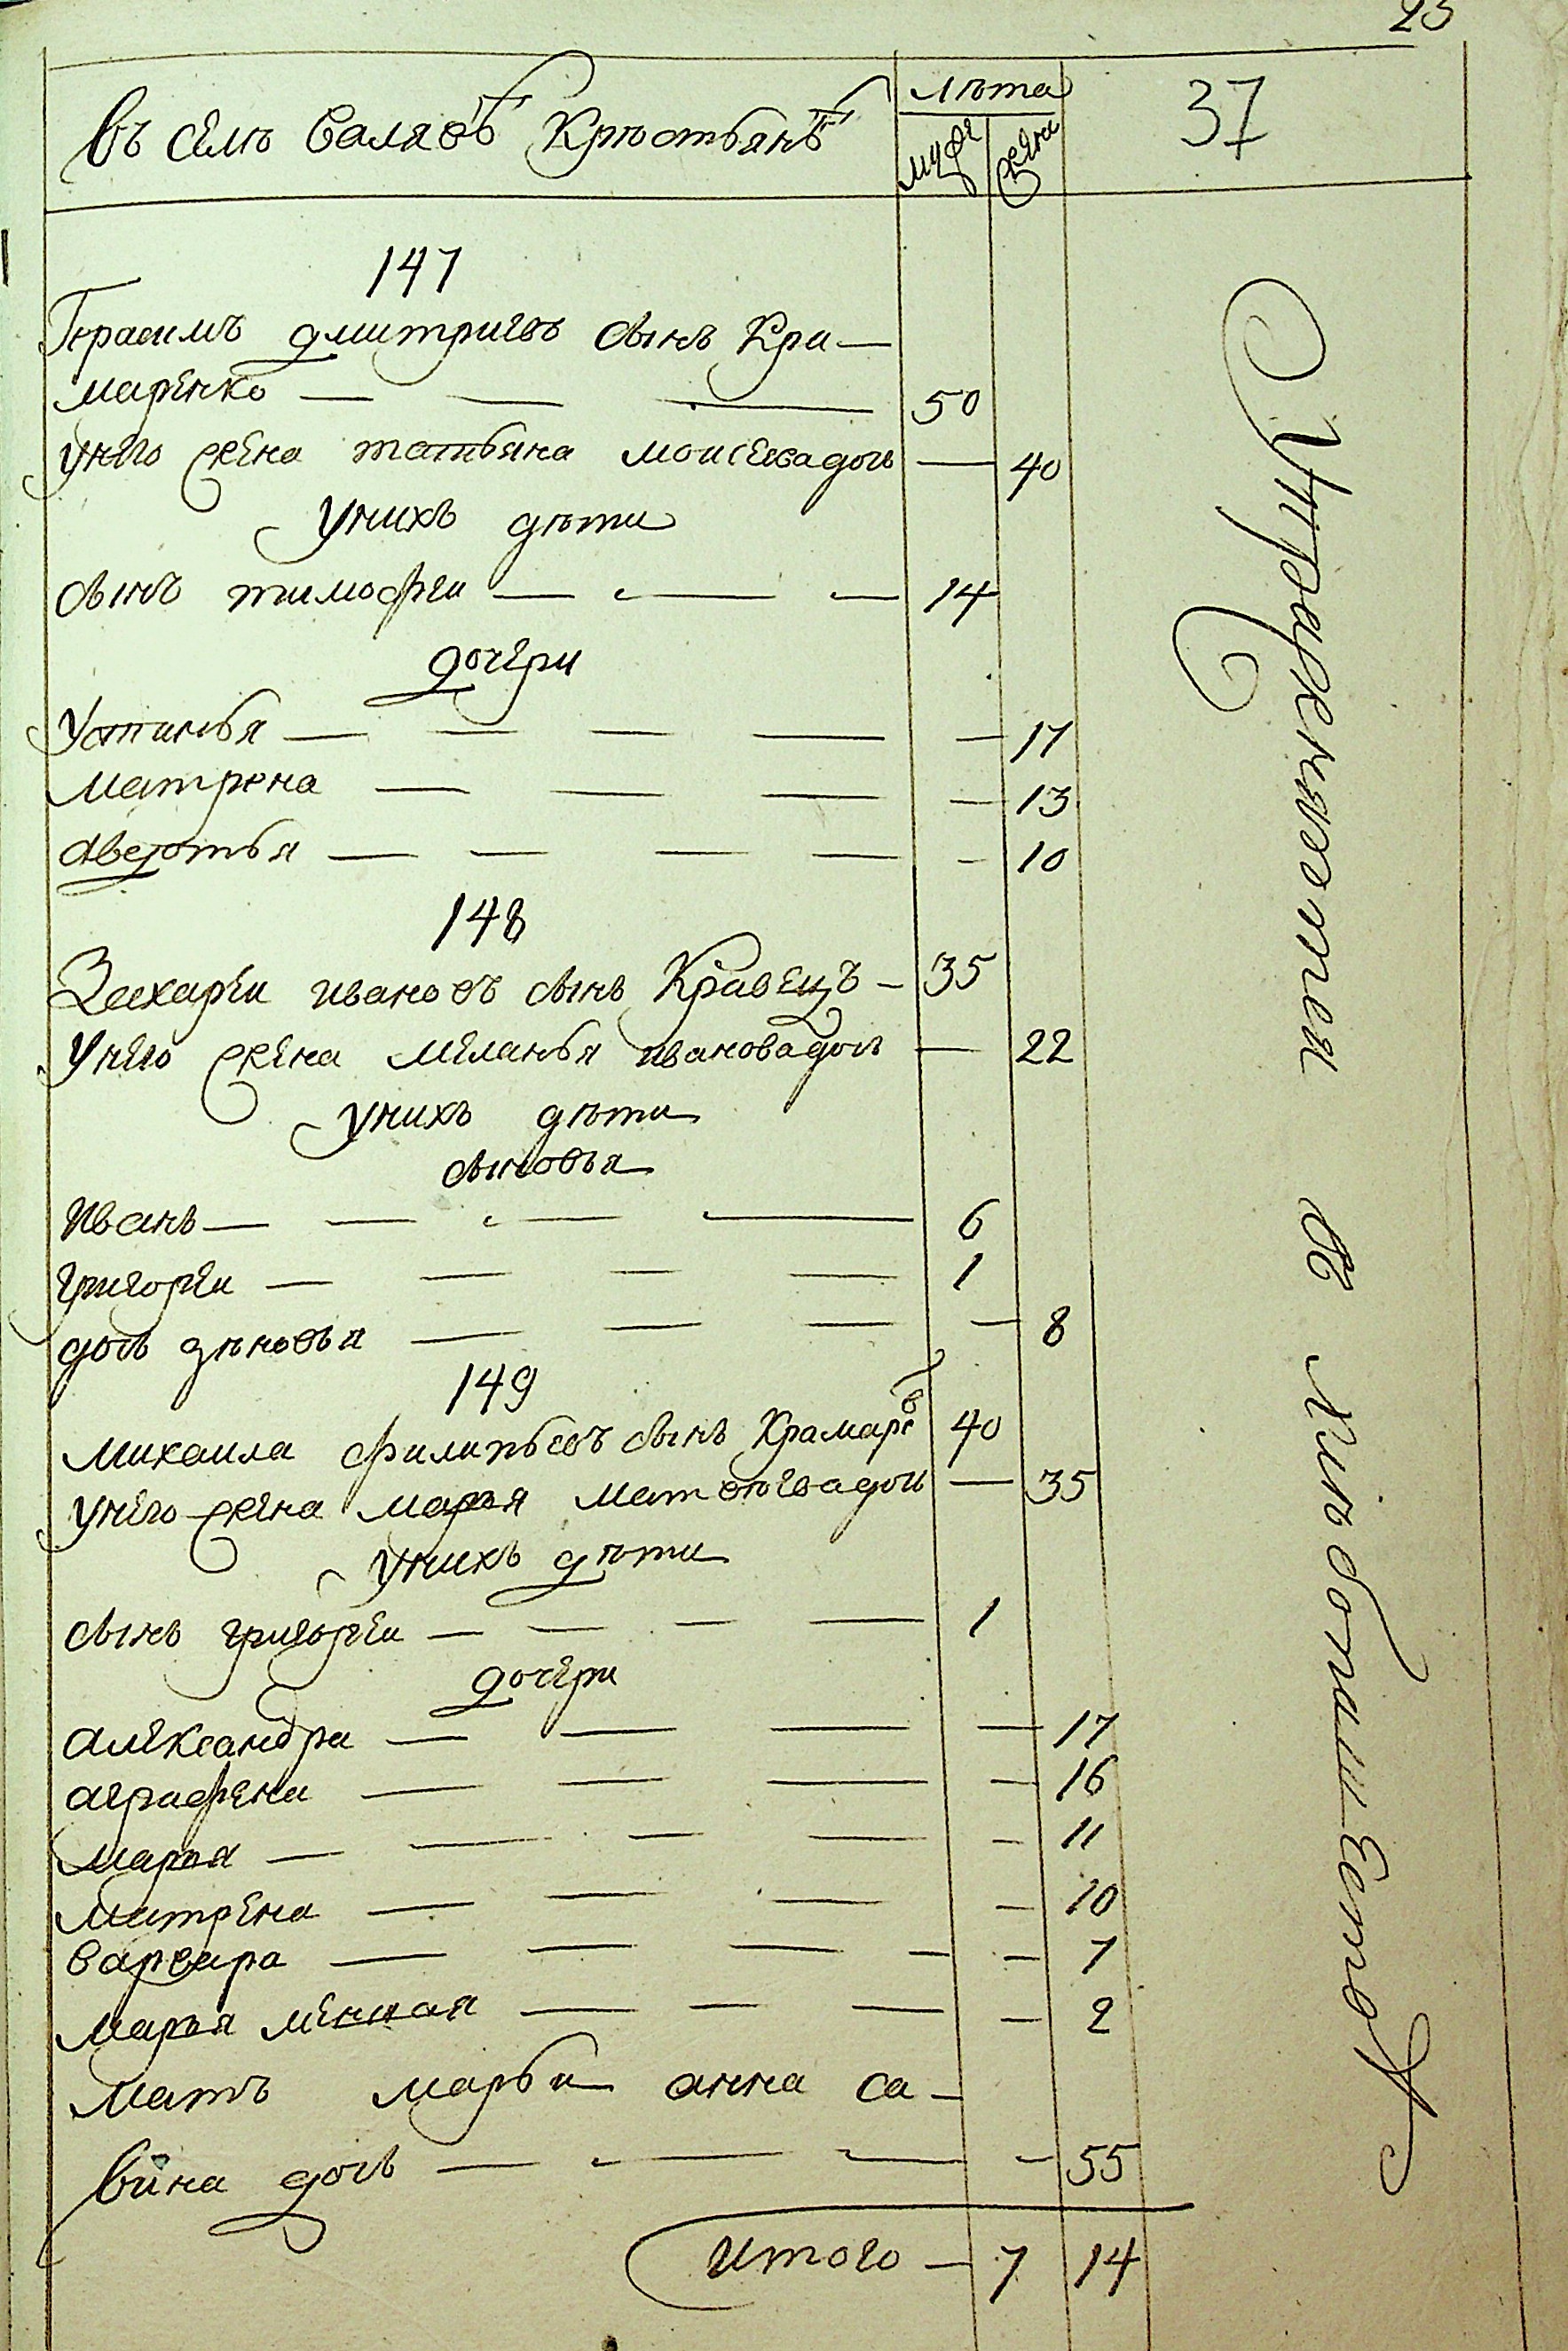 23
37
въ селѣ Саляевѣ Крѣстьянъ
лѣта
муже
жена
147
Герасимъ дмитриевъ сынъ Кра-
маренко — 50
унего жена татьяна моисеевадочь — 40
унихъ дѣти
сынъ тимофеи — 14
дочери
Устинья — 17
Матрена — 13
Авдотья — 10
148
Захареи ивановъ сынъ Кравецъ — 35
Унего жена меланья ивановадочь — 22
унихъ дѣти
сыновья
Иванъ — 6
григореи — 1
дочь зѣновья — 8
149
михаила филипьевъ сынъ Крамаревъ 40
унего жена марья матвѣевадочь — 35
унихъ дѣти
сынъ григореи — 1
дочери
александра — 17
аграфена — 16
марья — 11
матрена — 10
варвара — 7
марья меншая — 2
мать марьи анна са-
вина дочь — 55
итого — 7 14